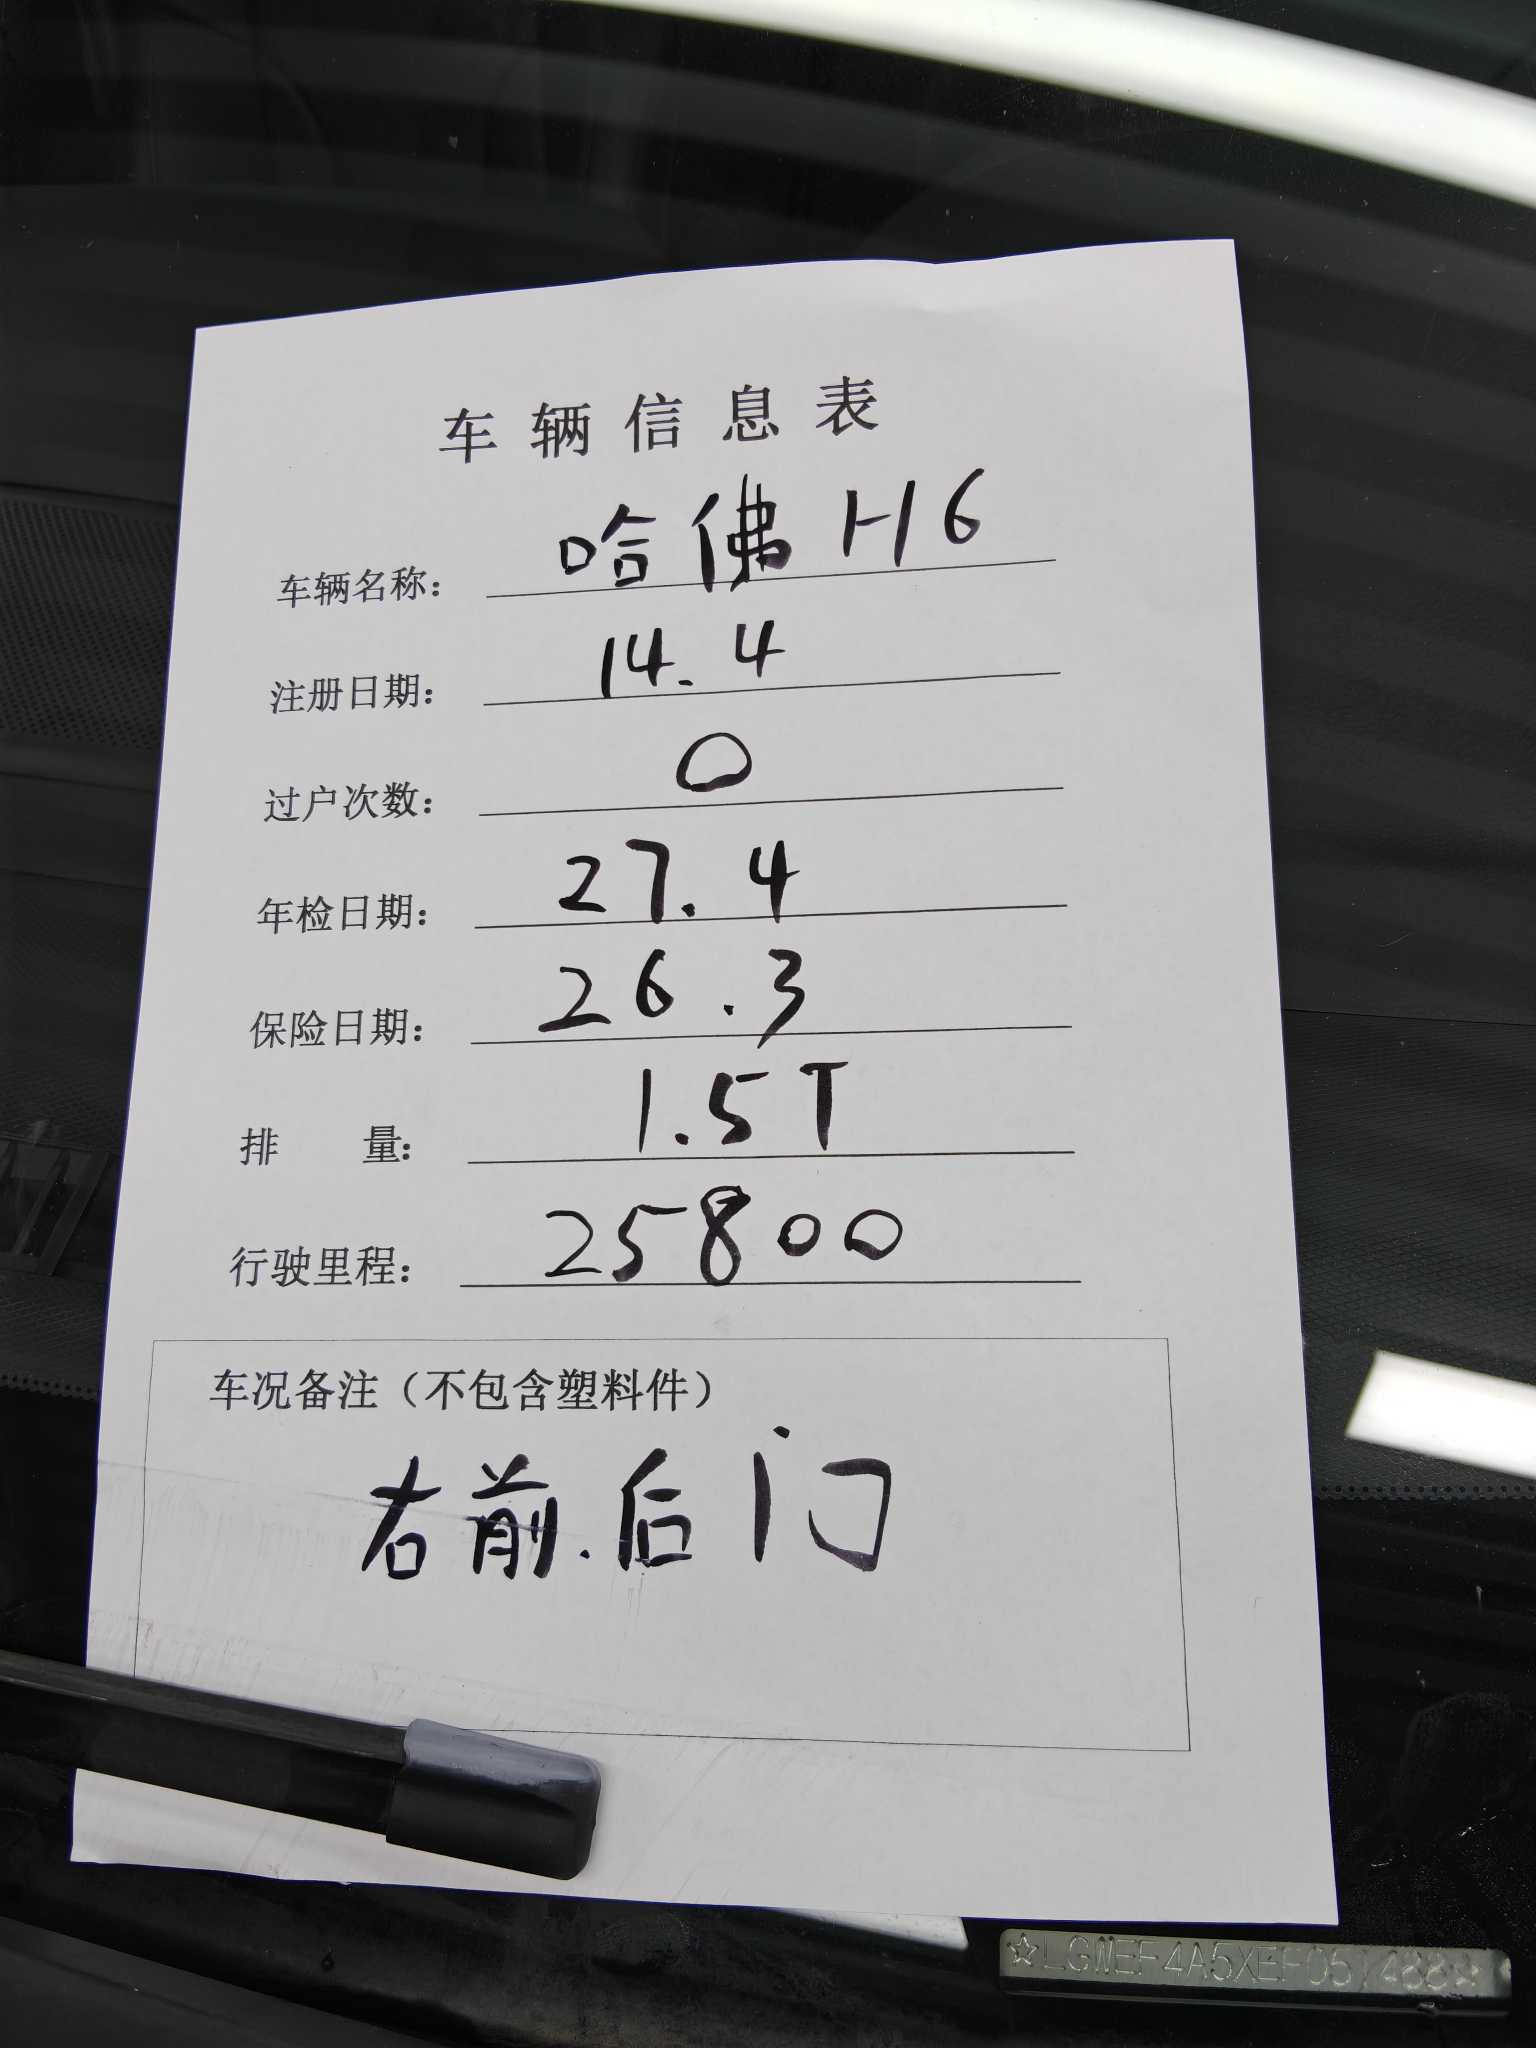 车辆信息表
车辆名称： 哈佛H6
注册日期： 14.4
过户次数： 0
年检日期： 27.4
保险日期： 26.3
排 量： 1.5T
行驶里程： 25800
车况备注（不包含塑料件）
右前.后门